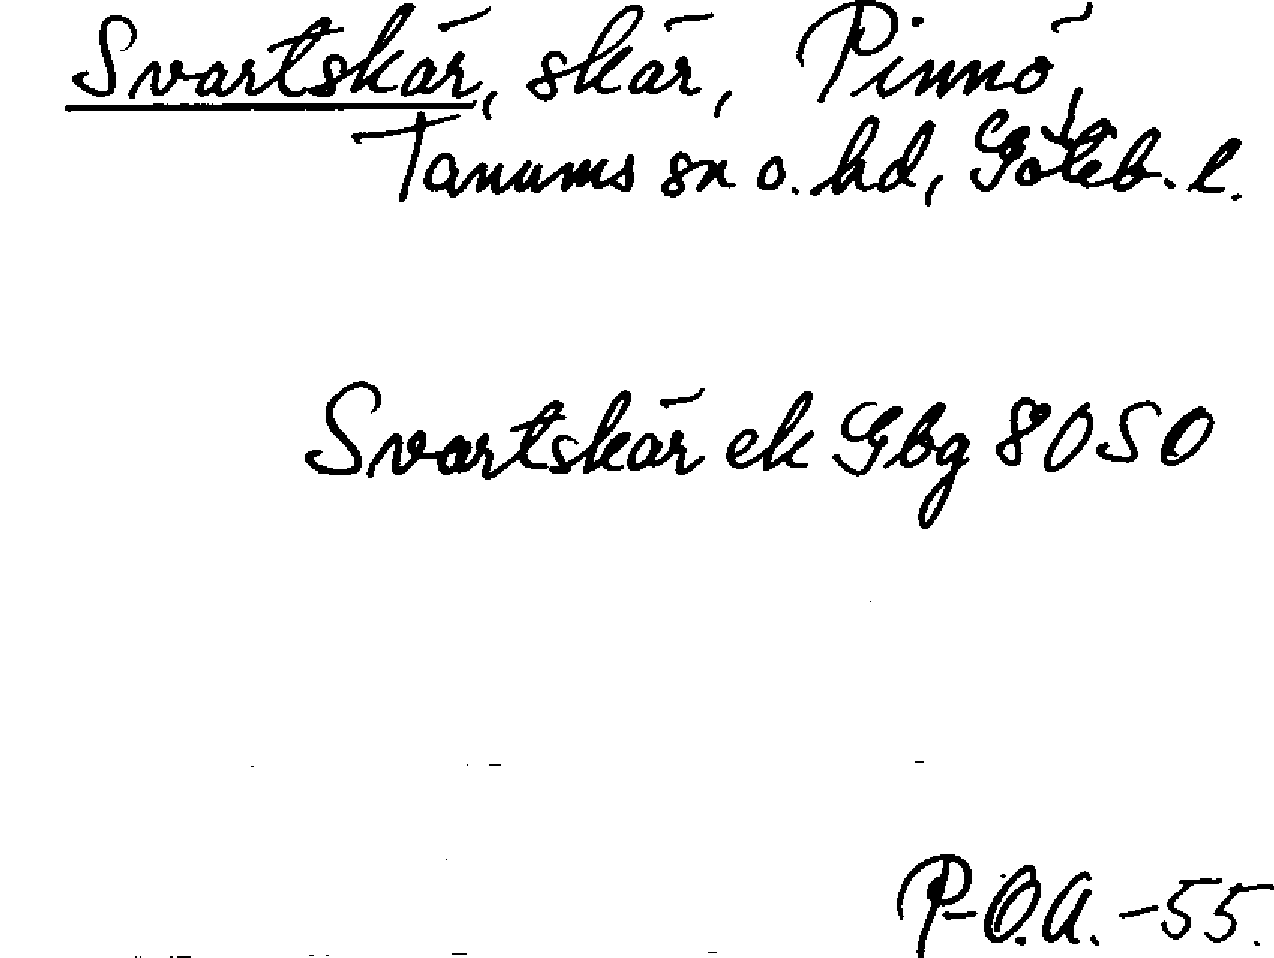 Svartskär, skär, Pinnö,
Tanums sn o. hd, Göteb. l.
Svartskär ek Gbg 8050
P-O.A. -55.